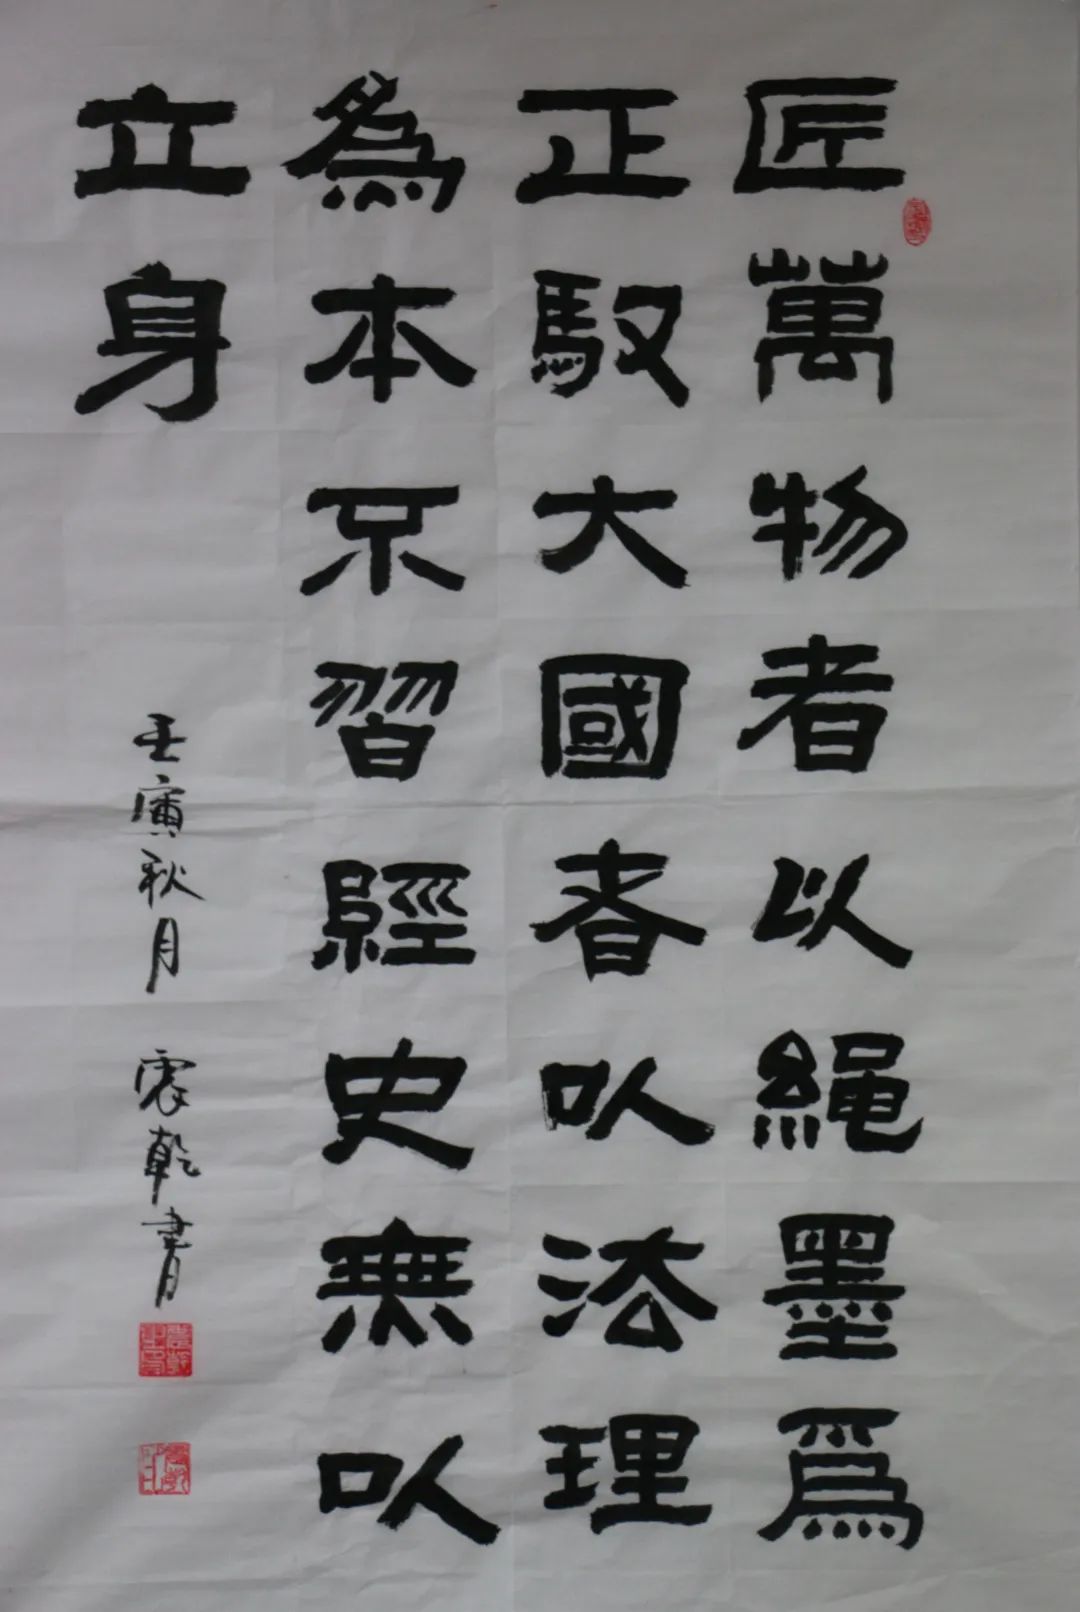 匠萬物者以繩墨為
正馭大國者以法理
為本不習經史無以
立身
壬寅秋月 震乾書